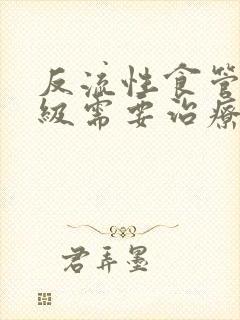 反流性食管
级需要治疗
君弄墨